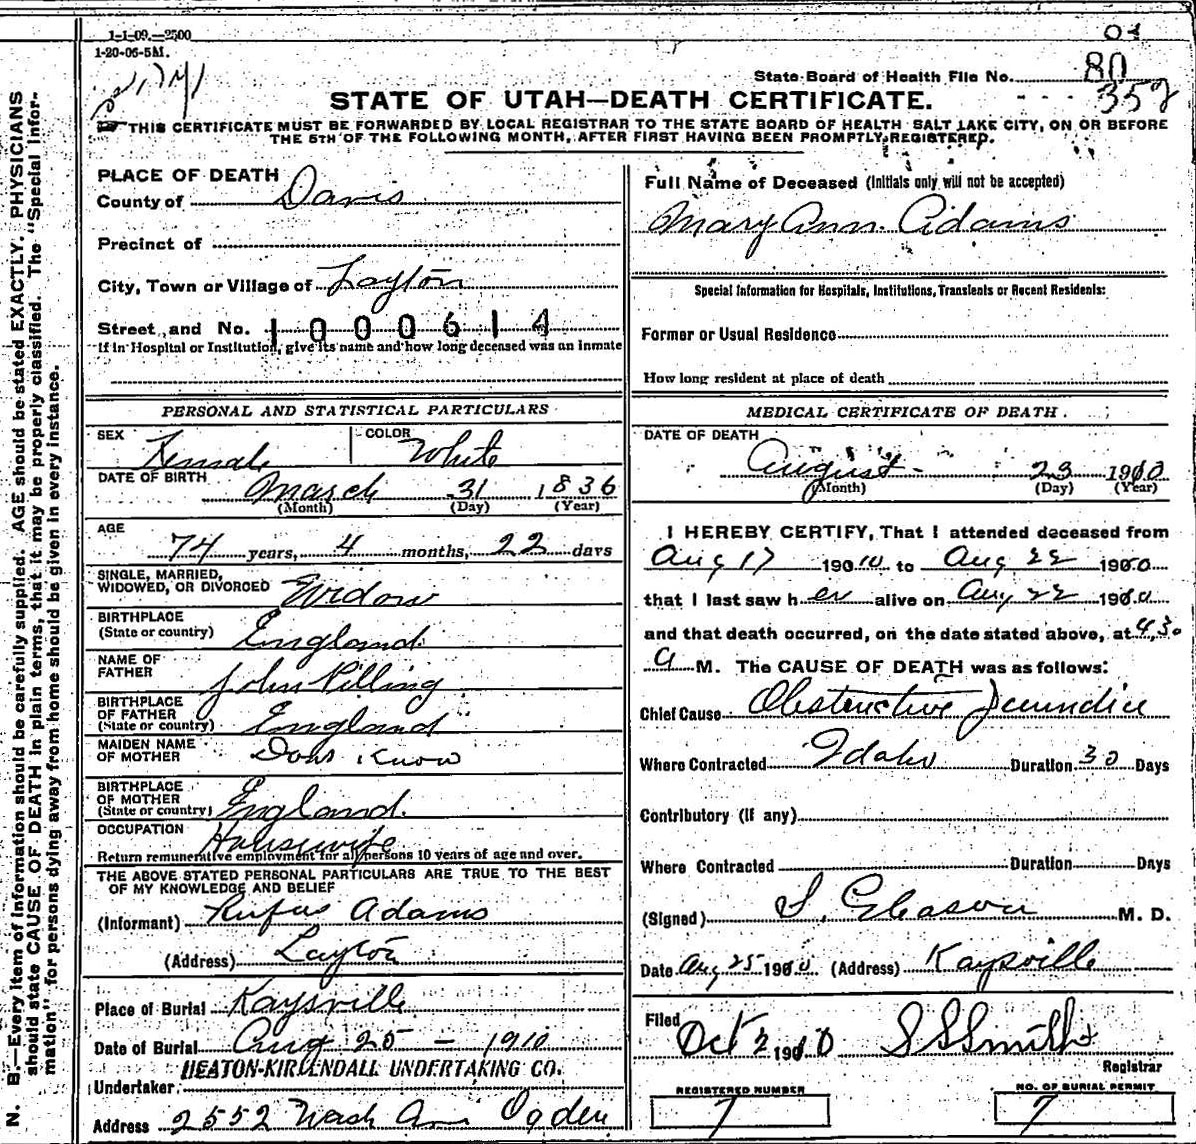 1-1-09.—2500
1-20-06-5M.
State Board of Health File No. 80
352
STATE OF UTAH—DEATH CERTIFICATE.
THIS CERTIFICATE MUST BE FORWARDED BY LOCAL REGISTRAR TO THE STATE BOARD OF HEALTH SALT LAKE CITY, ON OR BEFORE
THE 5TH OF THE FOLLOWING MONTH, AFTER FIRST HAVING BEEN PROMPTLY REGISTERED.
PLACE OF DEATH
County of Davis
Precinct of
City, Town or Village of Layton
Street and No. 1000614
If in Hospital or Institution, give its name and how long deceased was an inmate
PERSONAL AND STATISTICAL PARTICULARS
SEX Female COLOR White
DATE OF BIRTH March 31 1836
(Month) (Day) (Year)
AGE
74 years, 4 months, 22 days
SINGLE, MARRIED,
WIDOWED, OR DIVORCED Widow
BIRTHPLACE
(State or country) England
NAME OF
FATHER John Pilling
BIRTHPLACE
OF FATHER
(State or country) England
MAIDEN NAME
OF MOTHER Dont Know
BIRTHPLACE
OF MOTHER
(State or country) England.
OCCUPATION Housewife
Return remunerative employment for all persons 10 years of age and over.
THE ABOVE STATED PERSONAL PARTICULARS ARE TRUE TO THE BEST
OF MY KNOWLEDGE AND BELIEF
(Informant) Rufus Adams
(Address) Layton
Place of Burial Kaysville
Date of Burial Aug 25 - 1910
HEATON-KIRKENDALL UNDERTAKING CO.
Undertaker
Address 2552 Wash Ave Ogden
Full Name of Deceased (Initials only will not be accepted)
Mary Ann Adams
Special Information for Hospitals, Institutions, Transients or Recent Residents:
Former or Usual Residence
How long resident at place of death
MEDICAL CERTIFICATE OF DEATH.
DATE OF DEATH
August 23 1910
(Month) (Day) (Year)
I HEREBY CERTIFY, That I attended deceased from
Aug 17 1910 to Aug 22 1910
that I last saw her alive on Aug 22 1910
and that death occurred, on the date stated above, at 4.30
A M. The CAUSE OF DEATH was as follows:
Chief Cause Obstructive Jaundice
Where Contracted Idaho Duration 30 Days
Contributory (if any)
Where Contracted Duration Days
(Signed) S. Gleason M. D.
Date Aug 25 1910 (Address) Kaysville
Filed
Oct 2 1910 S S Smith
Registrar
REGISTERED NUMBER
7
NO. OF BURIAL PERMIT
7
N. B.—Every item of information should be carefully supplied. AGE should be stated EXACTLY. PHYSICIANS
should state CAUSE OF DEATH in plain terms, that it may be properly classified. The "Special Infor-
mation" for persons dying away from home should be given in every instance.